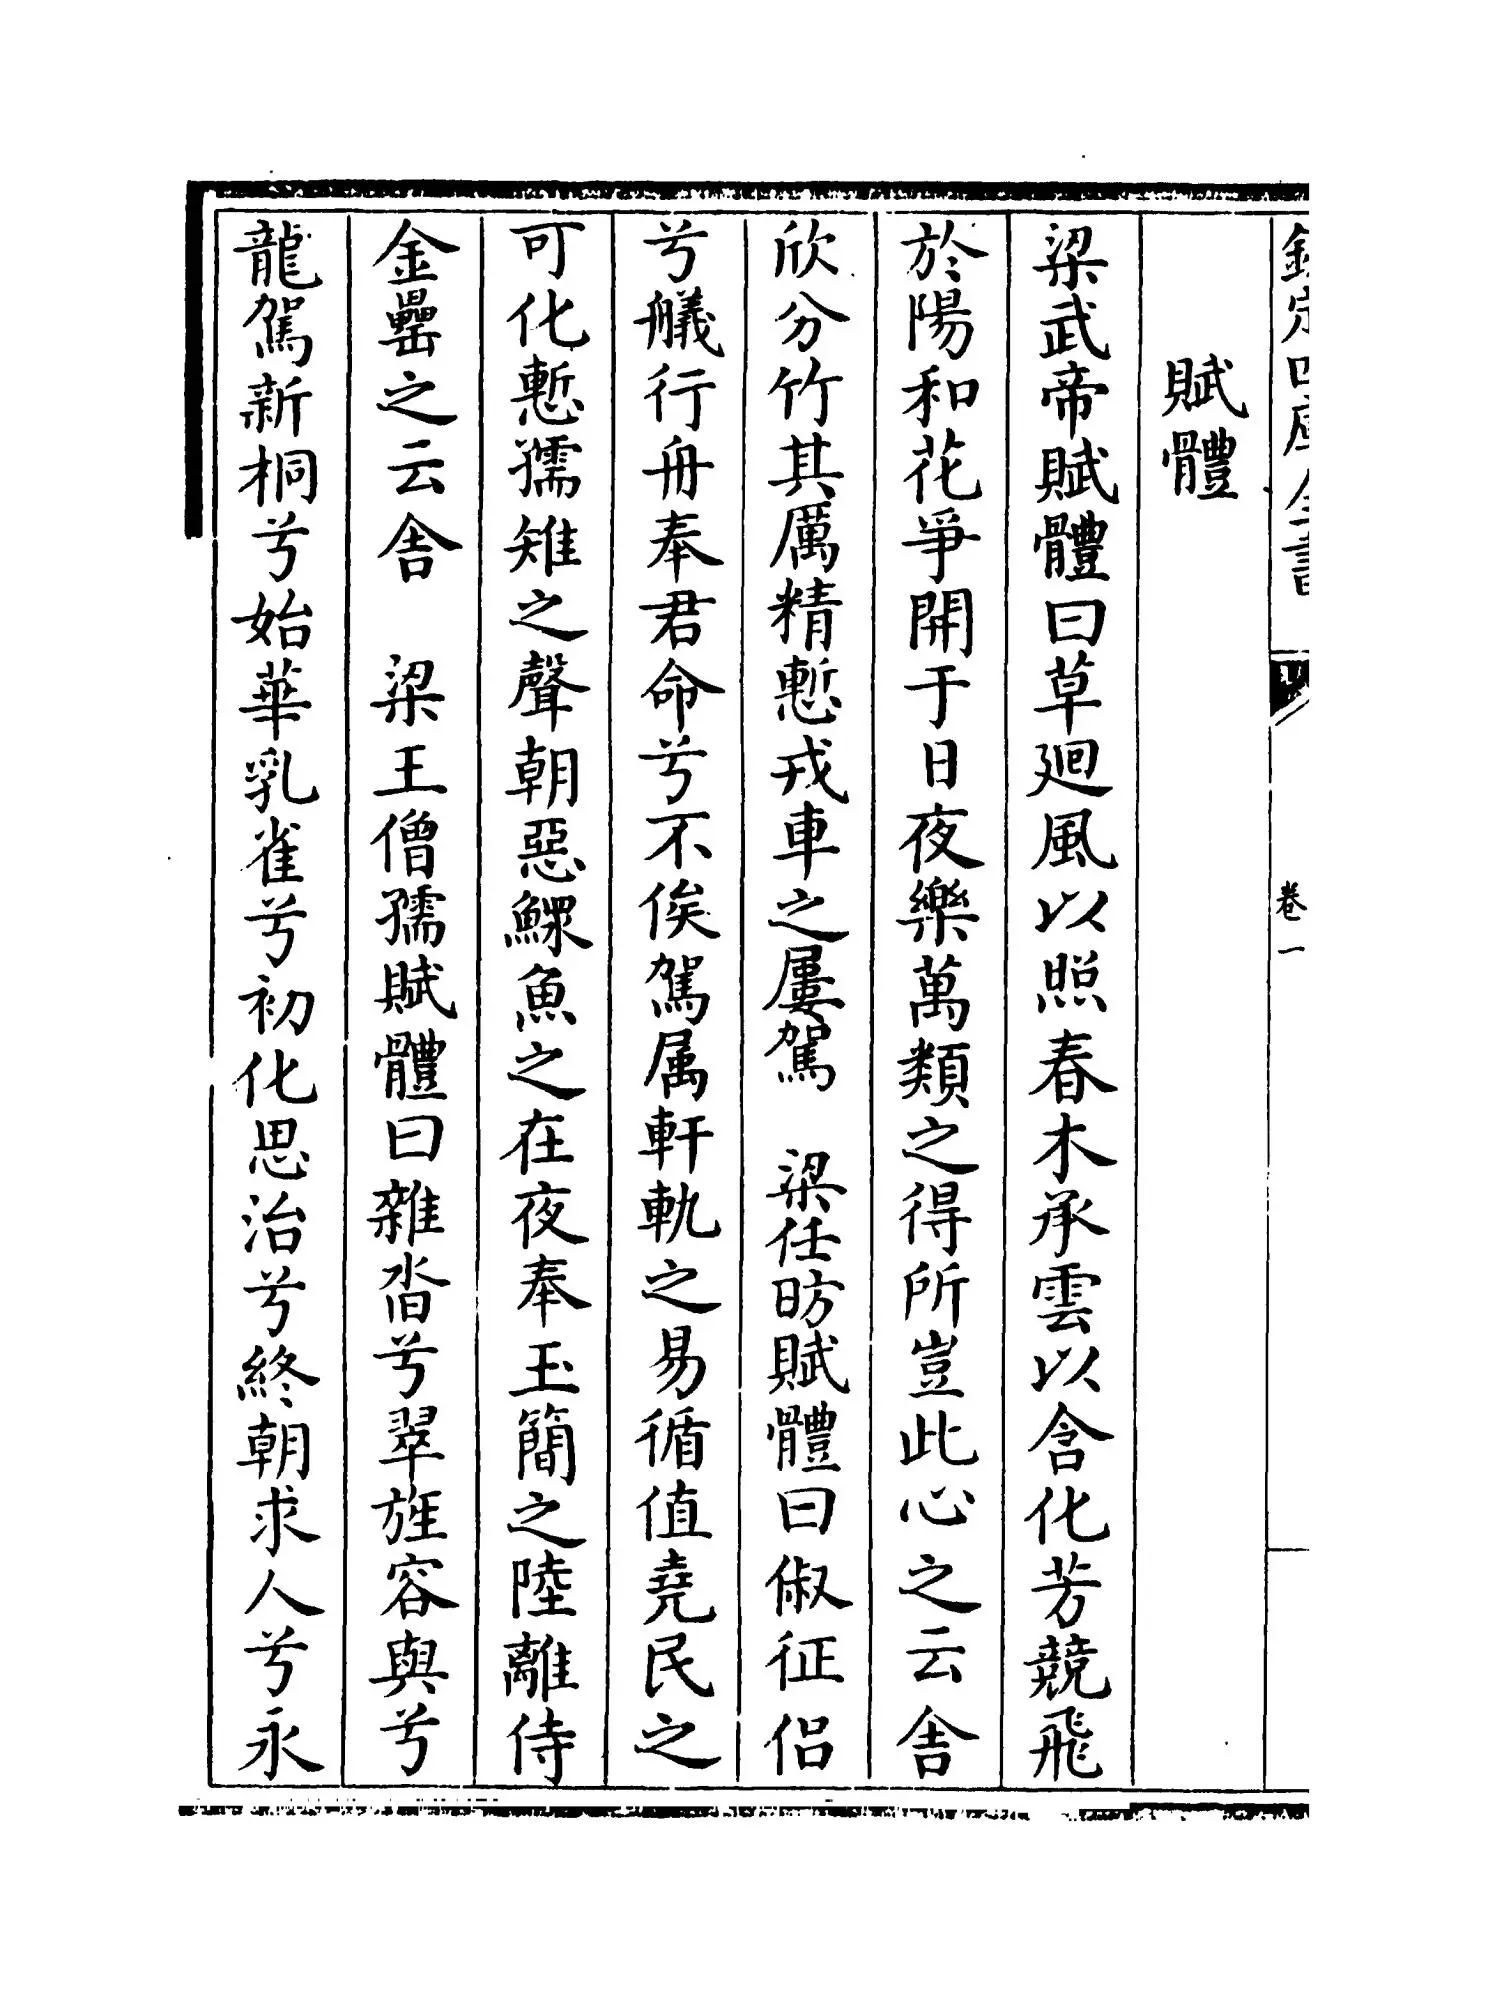 欽定四庫全書
卷一
賦體
梁武帝賦體曰草廻風以照春木承雲以含化芳競飛
於陽和花爭開于日夜樂萬類之得所豈此心之云舎
欣分竹其厲精慙戎車之屢駕　梁任昉賦體曰俶征侣
兮艤行舟奉君命兮不俟駕属軒軌之易循值堯民之
可化慙孺雉之聲朝惡鰥魚之在夜奉玉簡之陸離侍
金罍之云舎　梁王僧孺賦體曰雜沓兮翠旌容與兮
龍駕新桐兮始華乳雀兮初化思治兮終朝求人兮永